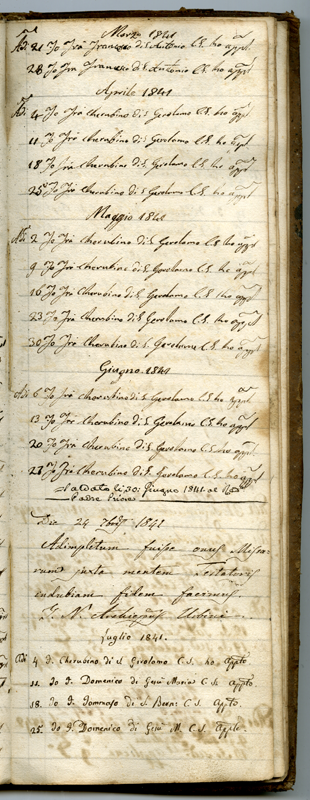 Marzo 1841
Adi 21 Io Frà Francesco di S. Antonio C.S. ho appto
28 Io Fra Francesco di S. Antonio C.S. ho appto
Aprile 1841
Adi 4 Io Frà Cherubino di S. Girolamo C.S. ho appto
11 Io Frà Cherubino di S. Girolamo C.S. ho appto
18 Io Frà Cherubino di S. Girolamo C.S. ho appto
25 Io Frà Cherubino di S. Girolamo C.S. ho appto
Maggio 1841
Adi 2 Io Frà Cherubino di S. Girolamo C.S. ho appto
9 Io Frà Cherubino di S. Girolamo C.S. ho appto
16 Io Frà Cherubino di S. Girolamo C.S. ho appto
23 Io Frà Cherubino di S. Girolamo C.S. ho appto
30 Io Frà Cherubino di S. Girolamo C.S. ho appto
Giugno 1841
Adi 6 Io Frà Cherubino di S. Girolamo C.S. ho appto
13 Io Frà Cherubino di S. Girolamo C.S. ho appto
20 Io Frà Cherubino di S. Girolamo C.S. ho appto
27 Io Frà Cherubino di S. Girolamo C.S. ho appto
Saldato li 30: Giugno 1841 al
Padre Priore
Die 24 7bris 1841
Adimpletum fuisse onus Missa-
rum juxta mentem Testatoris
indubiam fidem facimus
Urbini
Juglio 1841.
Adi 4 Cherubino di S Girolamo C.S. ho Appto
11. Io F. Domenico di Gesù Maria C S. Appto.
18. Io F. Tommaso di S. C S. Appto.
25. Io F. Domenico di Gesù M. C S. Appto.